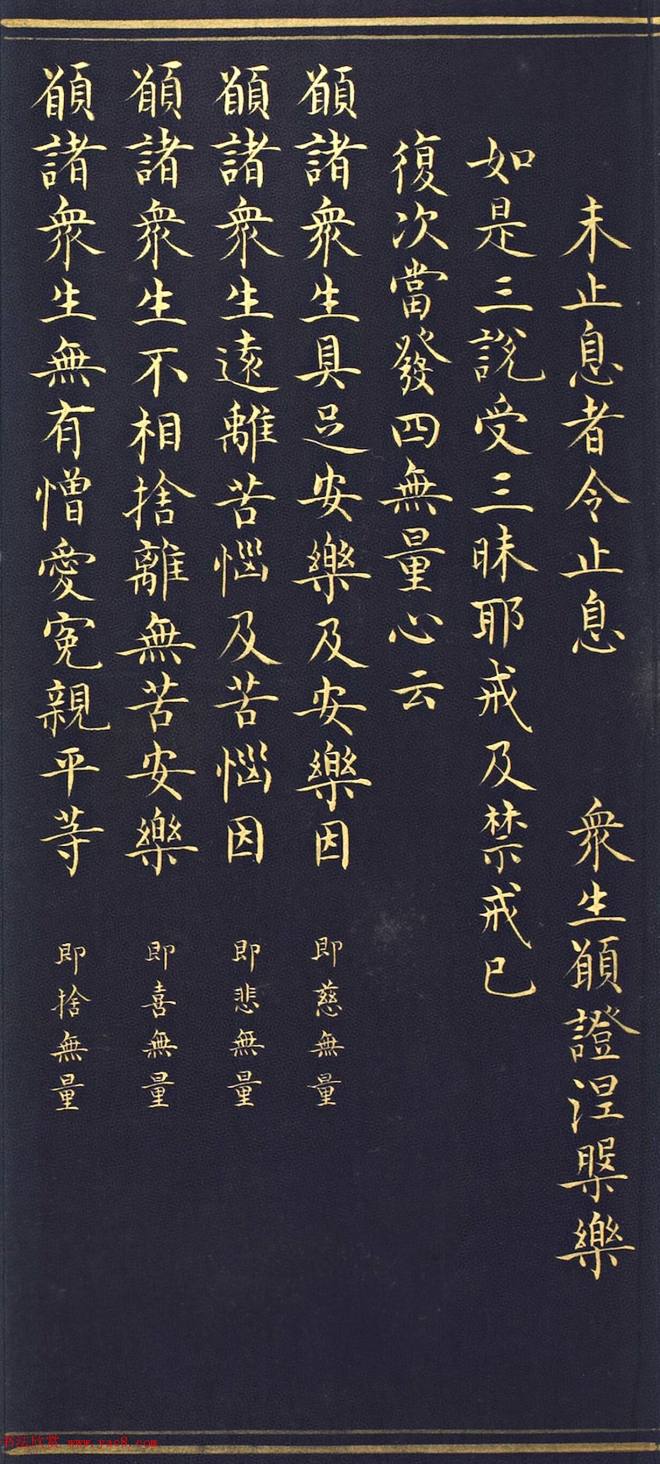 未止息者令止息　衆生願證涅槃樂
如是三說受三昧耶戒及禁戒已
復次當發四無量心云
願諸衆生具足安樂及安樂因　即慈無量
願諸衆生遠離苦惱及苦惱因　即悲無量
願諸衆生不相捨離無苦安樂　即喜無量
願諸衆生無有憎愛寃親平等　即捨無量
书法欣赏 www.yac8.com